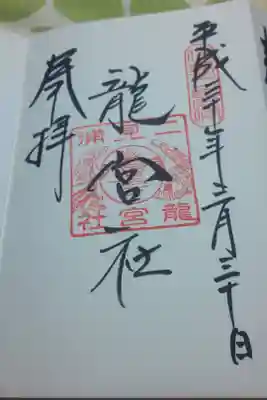 平成三十年十二月三十日
龍宮社
二見浦
龍宮社
奉拝